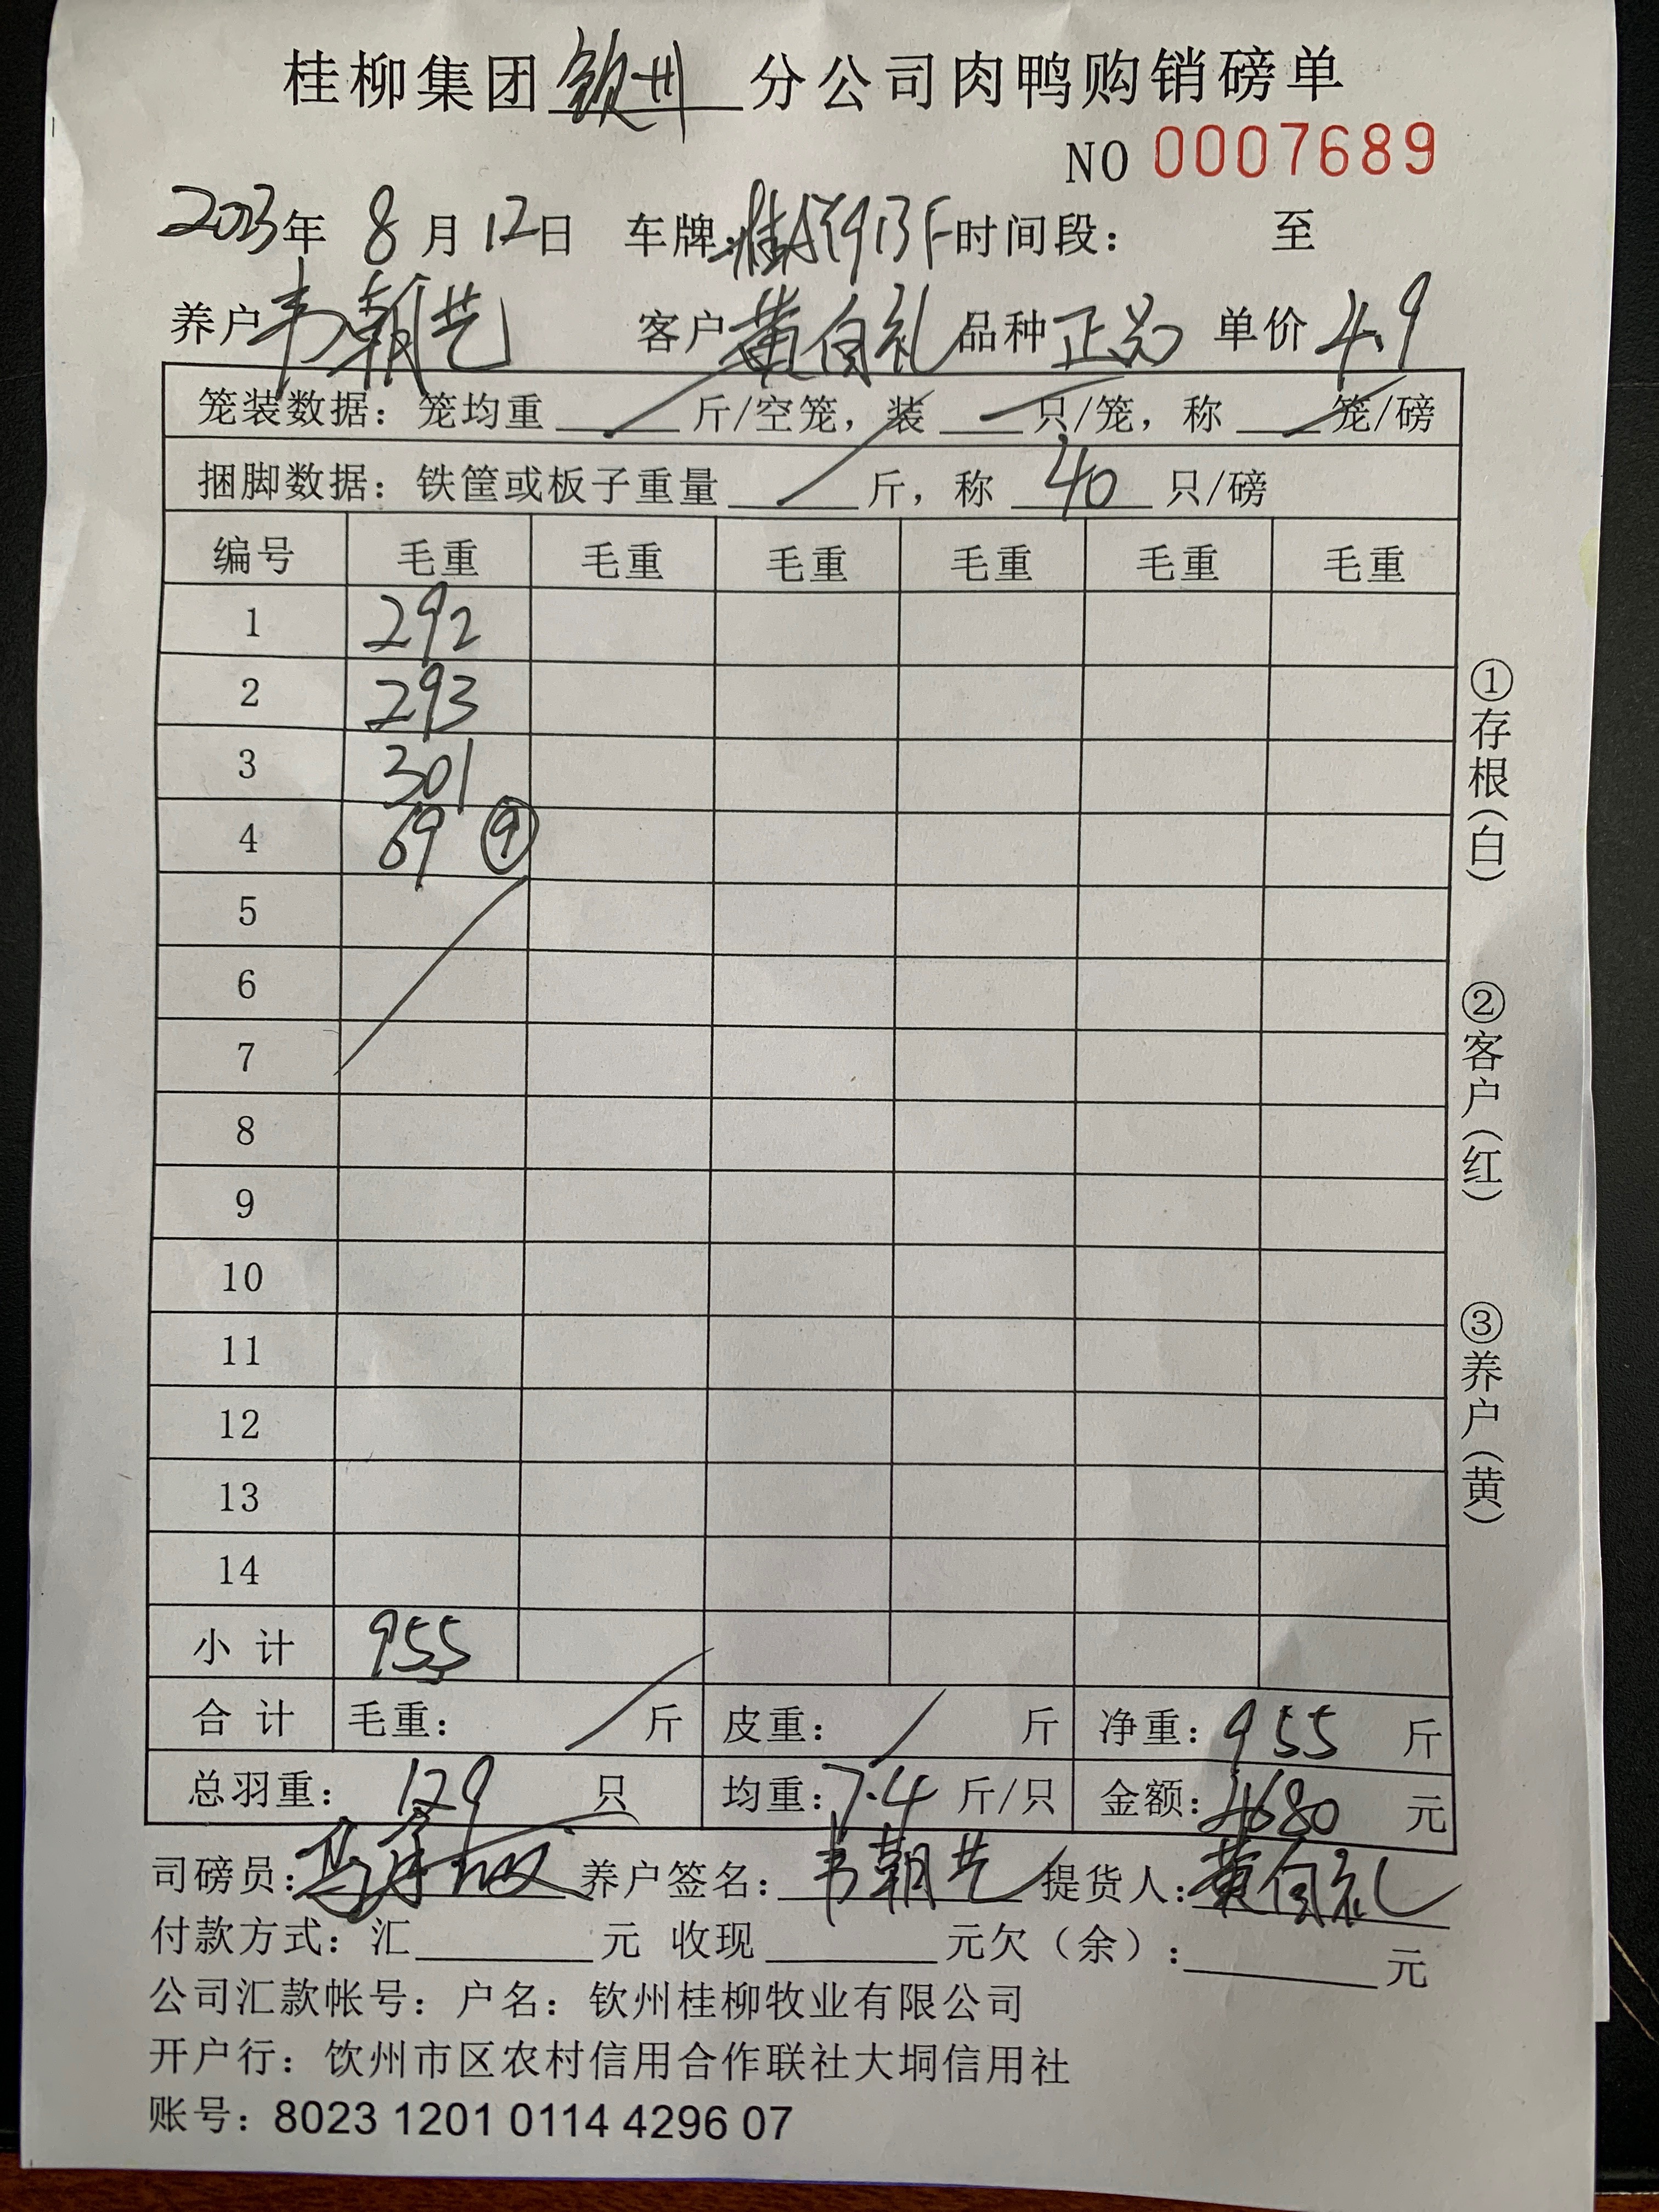 桂柳集团钦州分公司肉鸭购销磅单
NO 0007689
2023年 8月12日 车牌: 时间段: 至
养户韦朝艺 客户黄自礼 品种正品 单价4.9
笼装数据: 笼均重 斤/空笼, 装 只/笼, 称 笼/磅
捆脚数据: 铁筐或板子重量 斤, 称 40 只/磅
编号 毛重 毛重 毛重 毛重 毛重 毛重
1 292
2 293
3 301
4 69 ⑨
5
6
7
8
9
10
11
12
13
14
小 计 955
合 计 毛重: 斤 皮重: 斤 净重: 955 斤
总羽重: 129 只 均重: 7.4 斤/只 金额: 4680 元
司磅员: 养户签名: 韦朝艺 提货人: 黄自礼
付款方式: 汇 元 收现 元欠 (余): 元
公司汇款帐号: 户名: 钦州桂柳牧业有限公司
开户行: 钦州市区农村信用合作联社大垌信用社
账号: 8023 1201 0114 4296 07
①存根(白)
②客户(红)
③养户(黄)